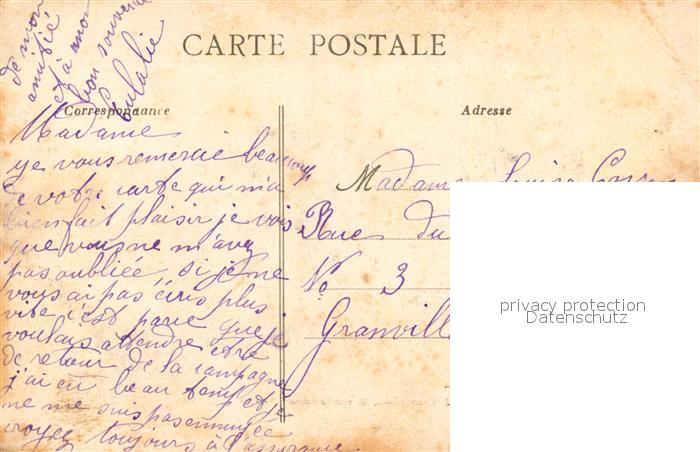 De mon
amitié
et à mon
bon souvenir
Eulalie
CARTE POSTALE
Correspondance
Adresse
Madame
ye, vous remercie beaucoup
de votre carte qui m'a
bien fait plaisir je vois
que vous ne m'avez
pas oubliée, si je ne
vous ai pas écris plus
vite c'est parce que je
voulais attendre etre
de retour de la campagne
j'ai eu beau temp et je
ne me suis pas ennuyée
croyez toujours à l'assurance
Madame
Rue du
No 3
Granvill
privacy protection
Datenschutz